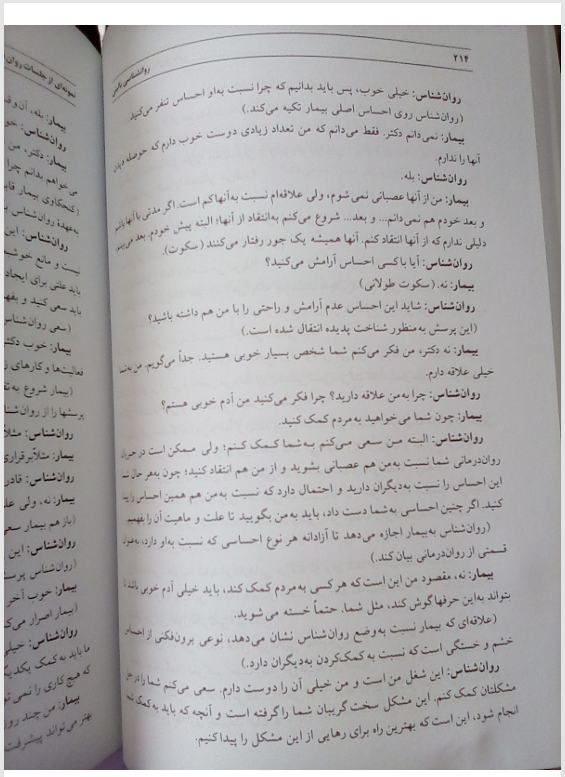 ۲۱۴
روان‌شناسی بالینی
روان‌شناس: خیلی خوب، پس باید بدانیم که چرا نسبت به‌او احساس تنفر می‌کنید.
(روان‌شناس روی احساس اصلی بیمار تکیه می‌کند.)
بیمار: نمی‌دانم دکتر. فقط می‌دانم که من تعداد زیادی دوست خوب دارم که حوصله دیدن
آنها را ندارم.
روان‌شناس: بله.
بیمار: من از آنها عصبانی نمی‌شوم، ولی علاقه‌ام نسبت به‌آنها کم است. اگر مدتی با آنها باشم
و بعد خودم هم نمی‌دانم... و بعد... شروع می‌کنم به‌انتقاد از آنها؛ البته پیش خودم. بعد می‌بینم
دلیلی ندارم که از آنها انتقاد کنم. آنها همیشه یک جور رفتار می‌کنند (سکوت).
روان‌شناس: آیا با کسی احساس آرامش می‌کنید؟
بیمار: نه. (سکوت طولانی)
روان‌شناس: شاید این احساس عدم آرامش و راحتی را با من هم داشته باشید؟
(این پرسش به‌منظور شناخت پدیده انتقال شده است.)
بیمار: نه دکتر، من فکر می‌کنم شما شخص بسیار خوبی هستید. جداً می‌گویم. من به‌شما
خیلی علاقه دارم.
روان‌شناس: چرا به‌من علاقه دارید؟ چرا فکر می‌کنید من آدم خوبی هستم؟
بیمار: چون شما می‌خواهید به‌مردم کمک کنید.
روان‌شناس: البته من سعی می‌کنم به‌شما کمک کنم؛ ولی ممکن است در جریان
روان‌درمانی شما نسبت به‌من هم عصبانی بشوید و از من هم انتقاد کنید؛ چون به‌هر حال شما
این احساس را نسبت به‌دیگران دارید و احتمال دارد که نسبت به‌من هم همین احساس را پیدا
کنید. اگر چنین احساسی به‌شما دست داد، باید به‌من بگویید تا علت و ماهیت آن را بفهمیم.
(روان‌شناس به‌بیمار اجازه می‌دهد تا آزادانه هر نوع احساسی که نسبت به‌او دارد، به‌عنوان
قسمتی از روان‌درمانی بیان کند.)
بیمار: نه، مقصود من این است که هر کسی به‌مردم کمک کند، باید خیلی آدم خوبی باشد تا
بتواند به‌این حرفها گوش کند، مثل شما. حتماً خسته می‌شوید.
(علاقه‌ای که بیمار نسبت به‌وضع روان‌شناس نشان می‌دهد، نوعی برون‌فکنی از احساس
خشم و خستگی است که نسبت به‌کمک‌کردن به‌دیگران دارد.)
روان‌شناس: این شغل من است و من خیلی آن را دوست دارم. سعی می‌کنم شما را در حل
مشکلتان کمک کنم. این مشکل سخت گریبان شما را گرفته است و آنچه که باید به‌کمک شما
انجام شود، این است که بهترین راه برای رهایی از این مشکل را پیدا کنیم.
نمونه‌ای از جلسات روان
بیمار: بله، آن وق
روان‌شناس: خو
بیمار: دکتر، من
می‌خواهم بدانم چرا
(کنجکاوی بیمار قاب
به‌عهدهٔ روان‌شناس ب
روان‌شناس: این
نیست و مانع خوشبـ
باید علتی برای ایجاد
باید سعی کنید و بفهم
(سعی روان‌شناس
بیمار: خوب دکتر
فعالیت‌ها و کارهای ر
(بیمار شروع به تف
پرسشها را از روان‌شنا
روان‌شناس: مثلاً
بیمار: مثلاً برقراری
روان‌شناس: قادر
بیمار: نه، ولی عل
(باز هم بیمار سعی
روان‌شناس: این
(روان‌شناس پرسش
بیمار: خوب آخر
(بیمار اصرار می‌ک
روان‌شناس: خیلی
ما باید به‌کمک یکدیگ
که هیچ کاری را نمی تو
بیمار: من چند روز
بهتر می‌تواند پیشرفت